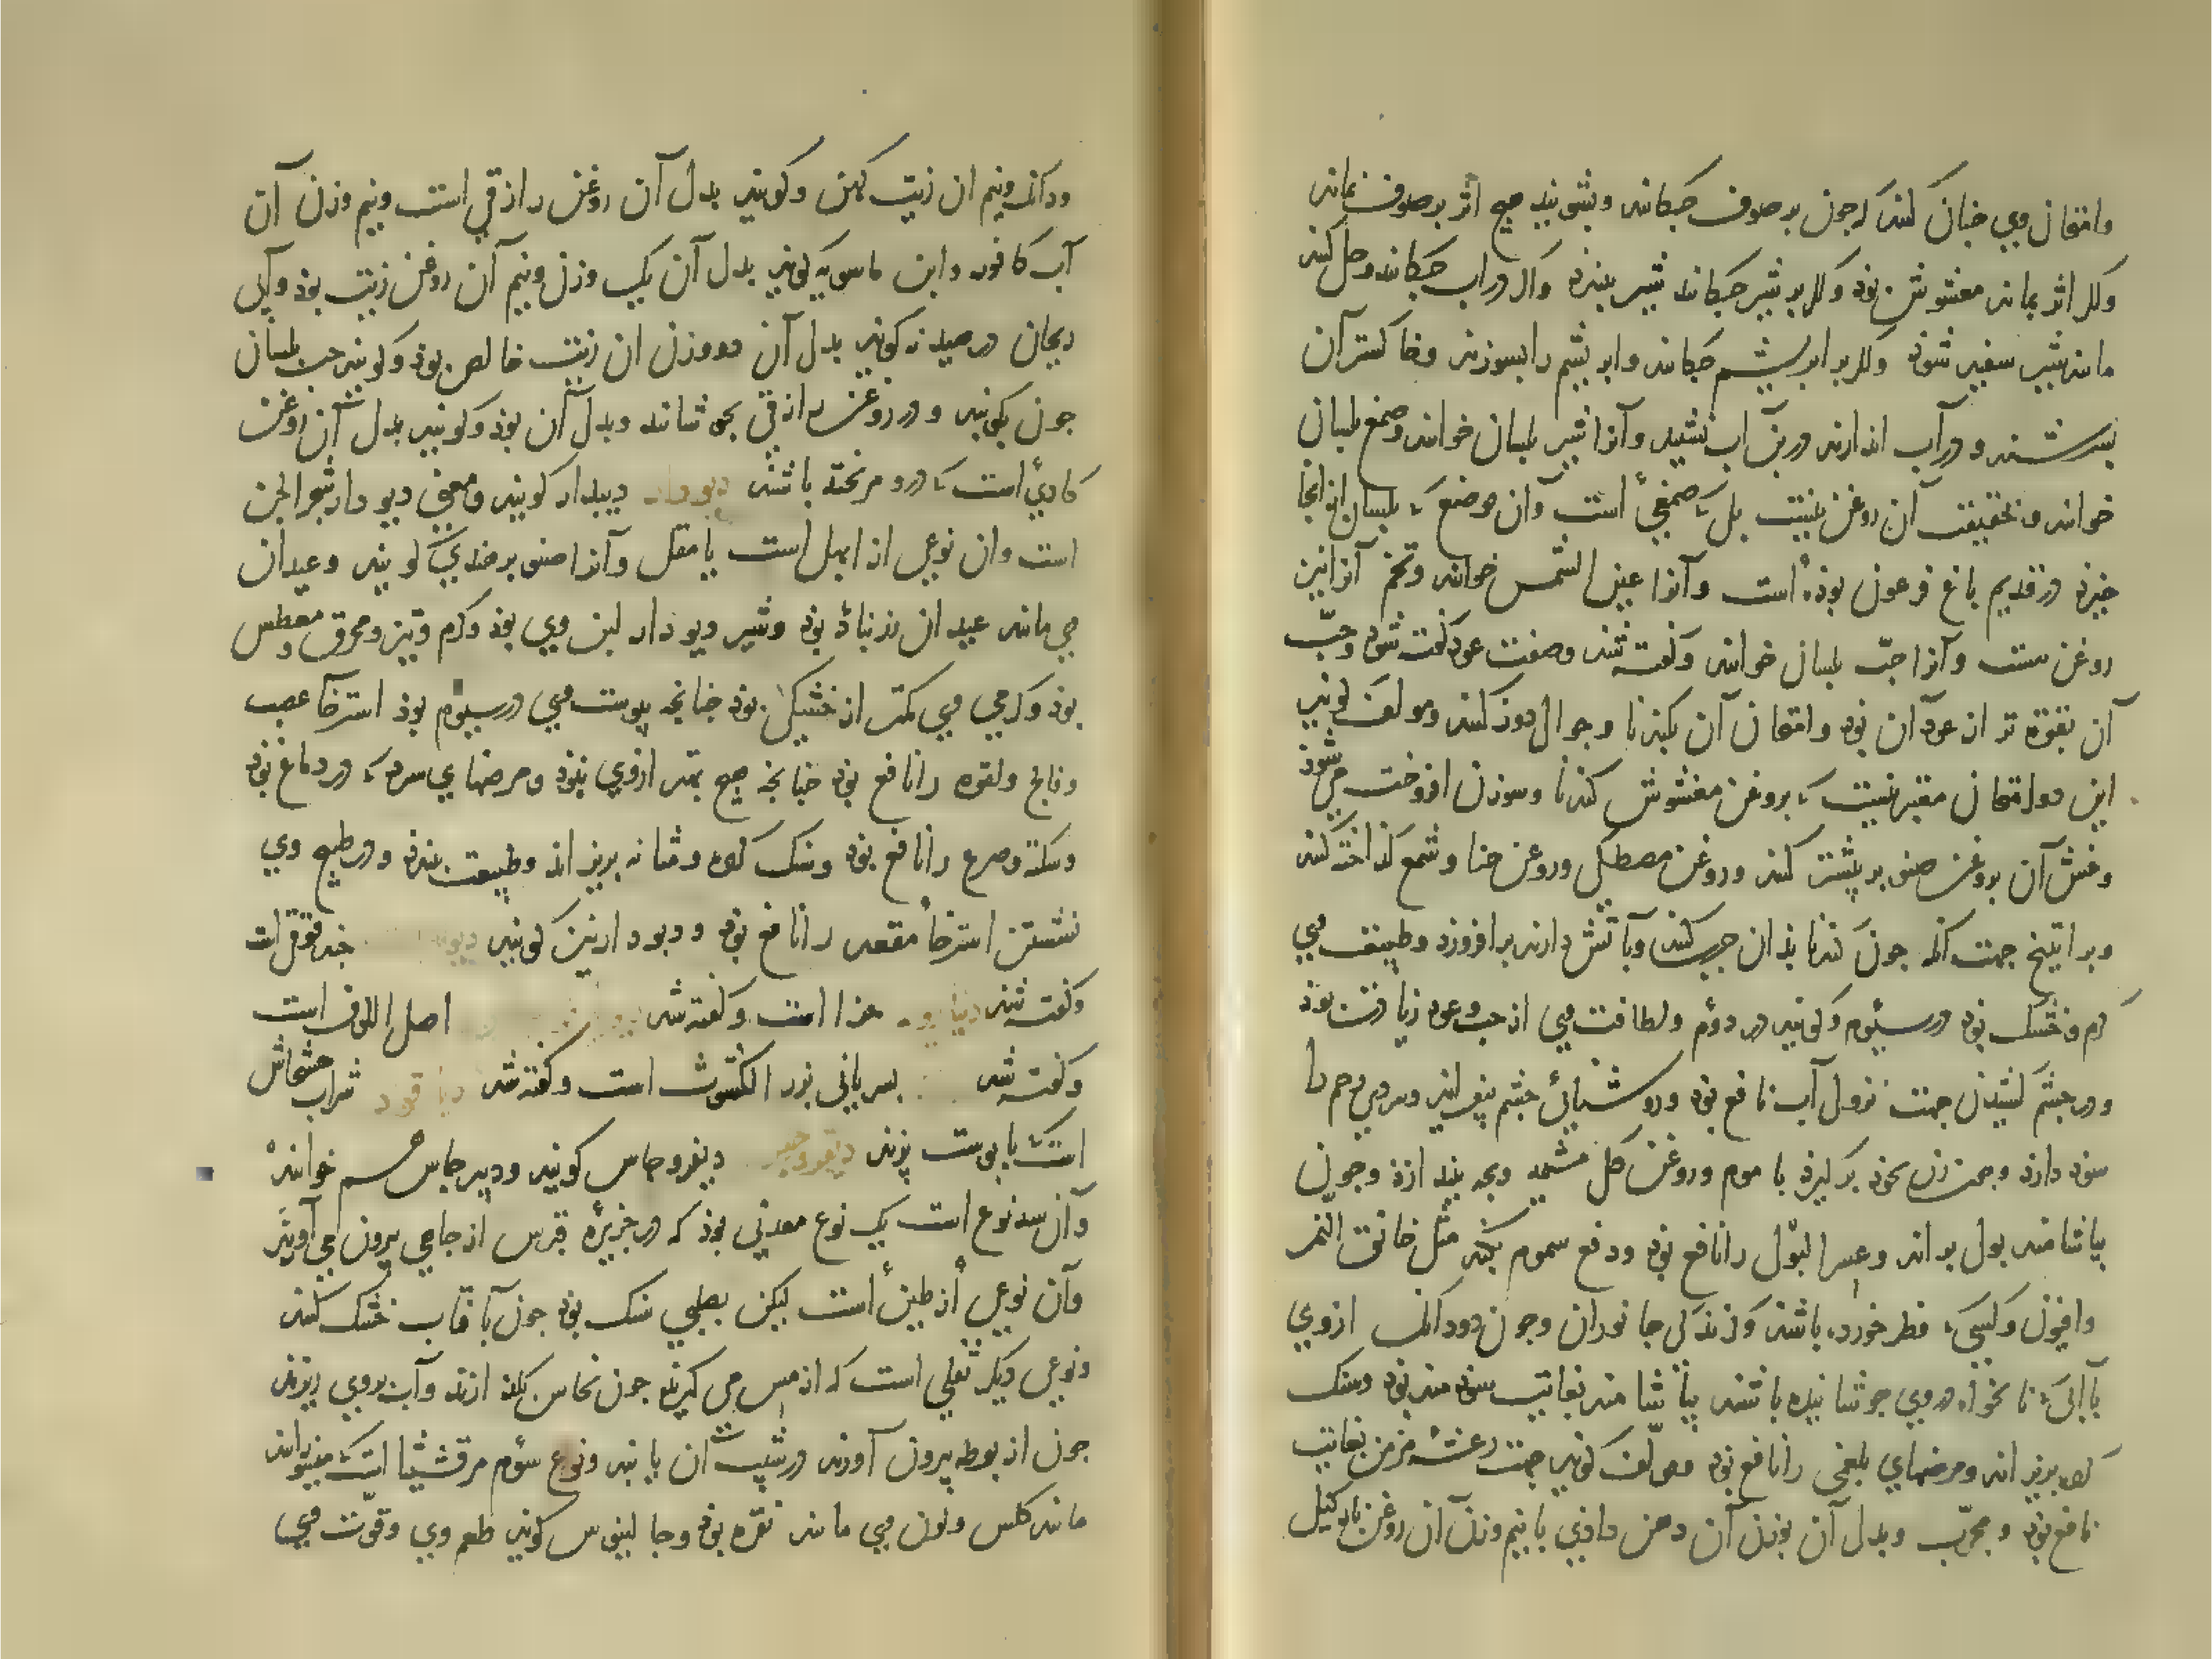 وامتحان وی چنان کنند که چون بر صوف چکانند و بشویند هیچ اثر بر صوف نماند
واکر اثر بماند مغشوش بوذ واکر بر شیر چکانند شیر ببندذ واکر در آب چکانند و حل کنند
مانند شیر سفید شوذ واکر بر ابریشم چکانند و ابریشم را بسوزند و خاکستر آن
بسرشند و در آب اندازند در بن آب نشیند و آنرا شیر بلسان خوانند و صمغ بلسان
خوانند و بحقیقت آن روغن نیست بل که صمغی است و آن موضع که بلسان از آنجا
خیزذ در قدیم باغ فرعون بوذه است و آنرا عین الشمس خوانند و تخم آنرا نیز
روغن هست و آنرا حب بلسان خوانند و کفته شد و صفت عود کفته شود و حب
آن بقوة تر از عود آن بوذ و امتحان آن بکندنا و جوال دوز کنند و مولف کوید
این دو امتحان معتبر نیست که بروغن مغشوش کندنا و سوزن افروخت می شوذ
و غش آن بروغن صنوبر بیشتر کنند و روغن مصطکی و روغن حنا و شمع کداخته کنند
جهت آنکه چون کندنا بذان چرب کنند و بآتش دارند برافروزد و طبیعت وی
کرم و خشک بوذ در سیوم و کویند در دوم و لطافت وی از حب و عود زیادت بوذ
و در چشم کشیدن جهت نزول آب نافع بوذ و روشنائی چشم بیفزاید و سردی رحم را
سوذ دارذ و چون زن بخوذ برکیرذ با موم و روغن کل مشیمه و بچه بیندازذ و چون
بیاشامند بول براند و عسر البول را نافع بوذ و دفع سموم بکند مثل خانق النمر
وافیون و کسی که فطر خورده باشد و کزندکی جانوران و چون دو دانک از وی
بآبی که نانخواه در وی جوشانیده باشند بیاشامند بغایت سوذمند بوذ و سنک
کرده بریزاند و مرضهای بلغمی را نافع بوذ مولف کوید جهت رعشه مزمن بغایت
نافع بوذ و مجرب و بدل آن بوزن آن دهن داذی با نیم وزن آن روغن نارکیل
ودانک ونیم ان زیت کهن وکویند بدل آن روغن رازقی است ونیم وزن آن
آب کافور وابن ماسویه کوید بدل آن یک وزن ونیم آن روغن زیت بوذ وآبی
ریحان در صیدنه کوید بدل آن دو وزن ان زیت خالص بوذ وکویند حب بلسان
چون بکوبند ودر روغن رازقی بجوشانند وبدل آن بوذ وکویند بدل آن روغن
کادی است که درو مر پخته باشند دیودار دیبدار کویند ومعنی دیودار شجر الجن
است وان نوعی از ابهل است یا مقل وآنرا صنوبر هندی کویند وعیدان
وی مانند عیدان زرنباذ بوذ وشیر دیودار لبن وی بوذ وکرم وتیز ومحرق ومعطس
بوذ وکرمی وی کمتر از خشکی بوذ چنانچه پوست وی در سیوم بوذ استرخا عصب
وفالج ولقوه را نافع بوذ چنانچه هیچ بهتر ازوی نبوذ ومرضهای سرد که در دماغ بوذ
وسکته وصرع را نافع بوذ وسنک کرده ومثانه بریزاند وطبیعت ببندذ ودر طبیخ وی
نشستن استرخا مقعد را نافع بوذ ودیودار نیز کویند حندقوقی است
وکفته شد دینارویه حزا است وکفته شد اصل اللوف است
وکفته شد بسریانی بزر الکشوث است وکفته شد دیاقوذ شراب خشخاش
است که با پوست پزند دیفروجس دیفروجاس کویند ودیبرجاس هم خوانند
وآن سه نوع است یک نوع معدنی بوذ که در جزیره قبرس از چاهی بیرون می آورند
وآن نوعی از طین است لیکن بصلبی سنک بوذ چون بآفتاب خشک کنند
ونوعی دیکر ثفلی است که از مس می کیرند چون نحاس بکدازند وآب بروی ریزند
چون از بوطه بیرون آورند در شیب ان یابند ونوع سوم مرقشیثا است که می سوزانند
مانند کلس ولون وی مانند نقره بوذ وجالینوس کوید طعم وی وقوت وی